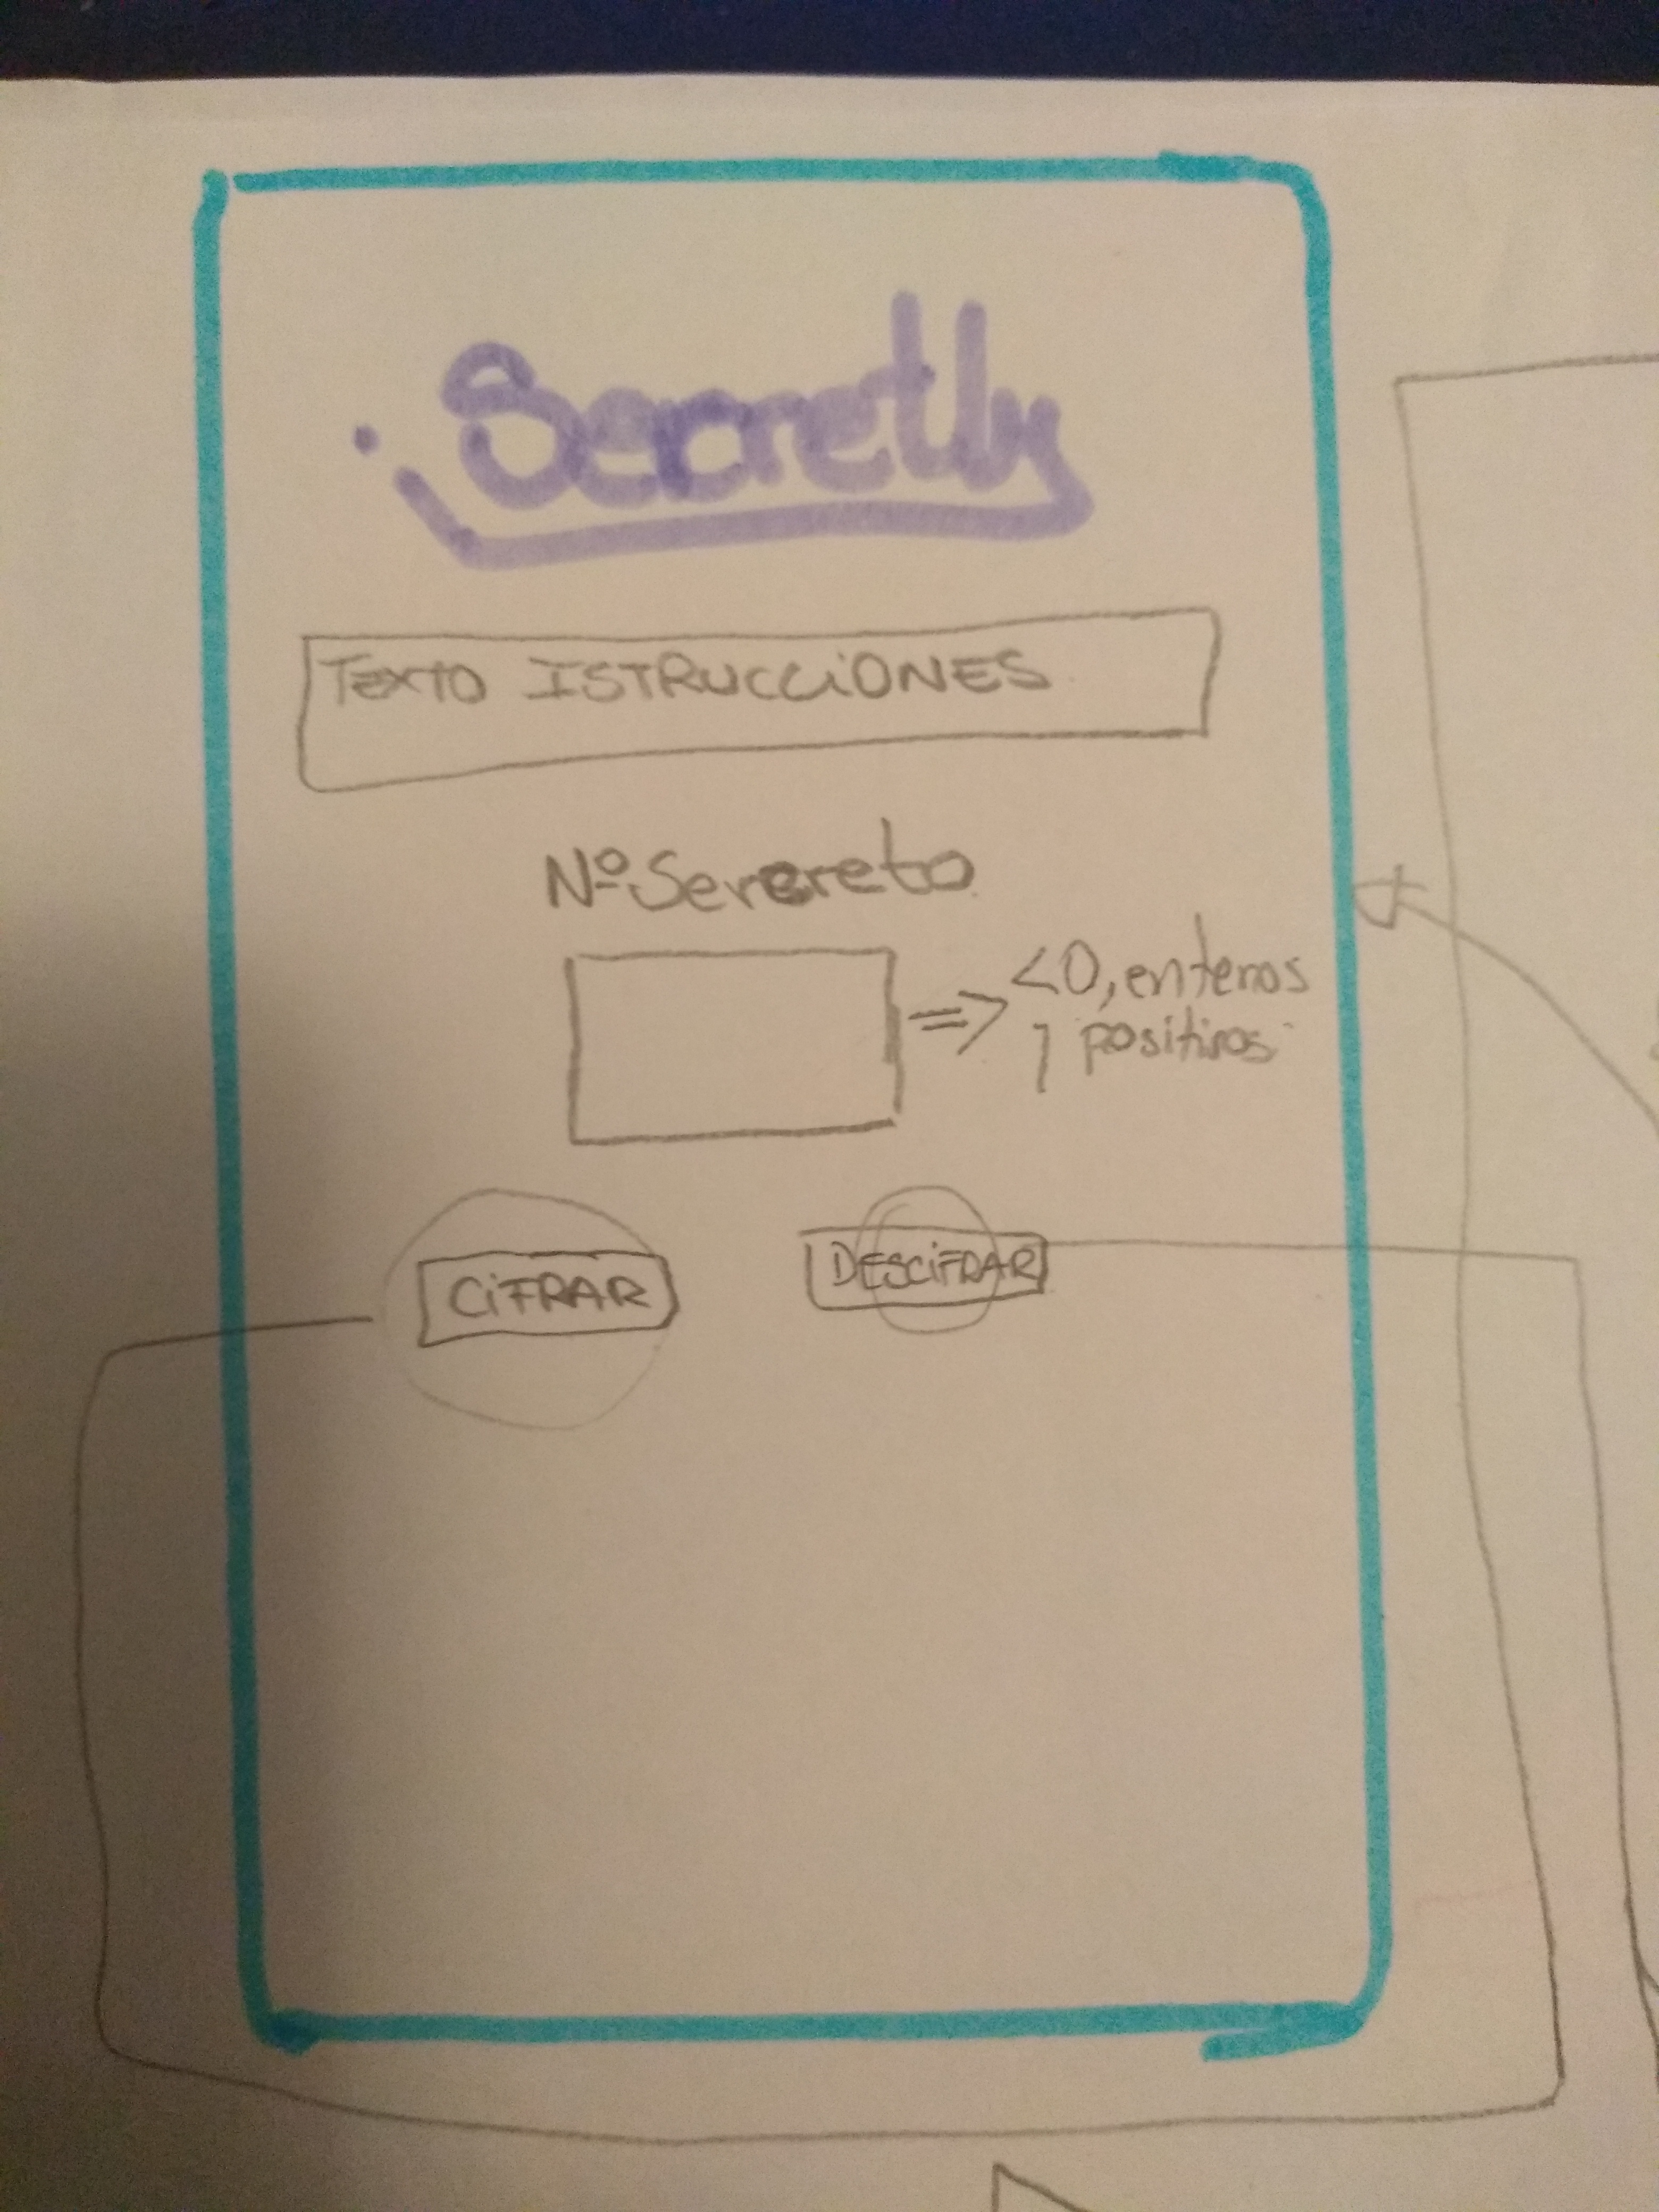 Secretly
TEXTO ISTRUCCIONES
Nº Sercreto
<0, enteros
y positivos
CIFRAR
DESCIFRAR